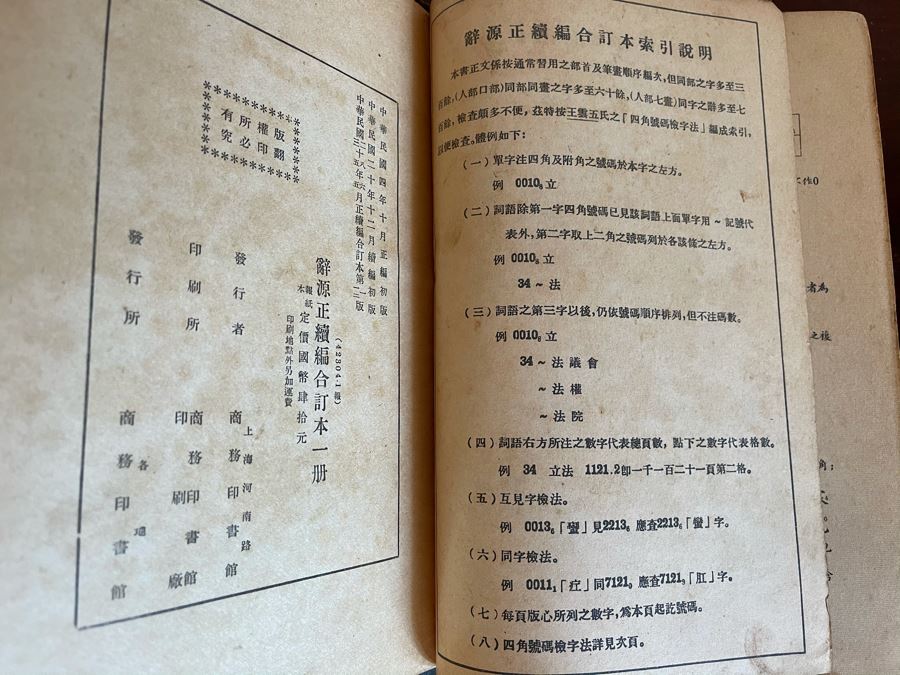 中華民國四年十月正編初版
中華民國二十年十二月續編初版
辭源正續編合訂本一册
(42804·1報)
報紙本
定價國幣肆拾元
印刷地點外另加運費
版權所有
翻印必究
發行者
商務印書館
上海河南路
印刷所
商務印書館
印刷廠
發行所
商務印書館
各埠
辭源正續編合訂本索引說明
本書正文係按通常習用之部首及筆畫順序編次，但同部之字多至三
百餘，(人部口部)同部同畫之字多至六十餘，(人部七畫)同字之辭多至七
百餘，檢查頗多不便，茲特按王雲五氏之「四角號碼檢字法」編成索引，
以便檢查。體例如下：
(一)單字注四角及附角之號碼於本字之左方。
例 0010₈立
(二)詞語除第一字四角號碼已見該詞語上面單字用～記號代
表外，第二字取上二角之號碼列於各該條之左方。
例 0010₈立
34～法
(三)詞語之第三字以後，仍依號碼順序排列，但不注碼數。
例 0010₈立
34～法議會
～法權
～法院
(四)詞語右方所注之數字代表總頁數，點下之數字代表格數。
例 34 立法 1121.2卽一千一百二十一頁第二格。
(五)互見字檢法。
例 0013₆「蠻」見2213₆ 應查2213₆「蠻」字。
(六)同字檢法。
例 0011₁「疘」同7121₁ 應查7121₁「肛」字。
(七)每頁版心所列之數字，爲本頁起訖號碼。
(八)四角號碼檢字法詳見次頁。